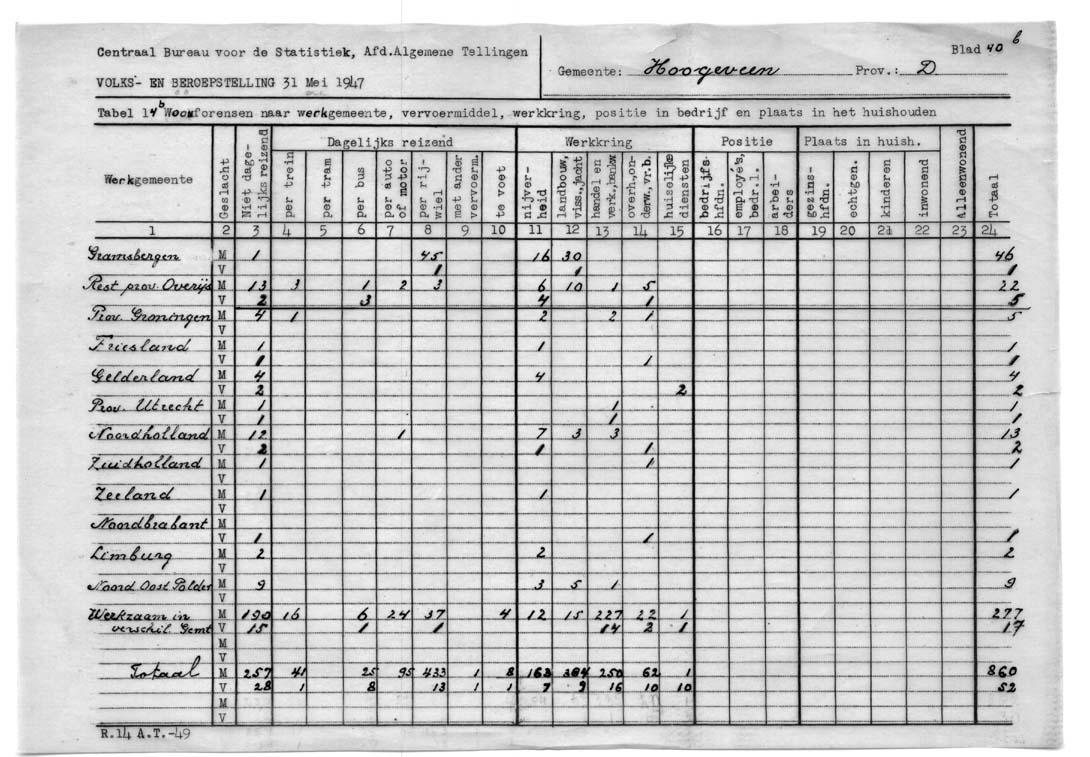 Centraal Bureau voor de Statistiek, Afd.Algemene Tellingen
VOLKS- EN BEROEPSTELLING 31 Mei 1947
Gemeente: Hoogeveen Prov.: D
Blad 40 b
Tabel 14 b Woonforensen naar werkgemeente, vervoermiddel, werkkring, positie in bedrijf en plaats in het huishouden
Werkgemeente Geslacht Niet dagelijks reizend Dagelijks reizend Werkkring Positie Plaats in huish. Alleenwonend Totaal
per trein per tram per bus per auto of motor per rijwiel met ander vervoerm. te voet nijverheid landbouw, viss.,jacht handel en verk.,bankw. overh.,onderw,vr.b. huiselijke diensten bedrijfshfdn. employe's, bedr.l. arbeiders gezinshfdn. echtgen. kinderen inwonend
1 2 3 4 5 6 7 8 9 10 11 12 13 14 15 16 17 18 19 20 21 22 23 24
Gramsbergen M 1 45 16 30 46
V 1 1 1
Rest prov. Overijs M 13 3 1 2 3 6 10 1 5 22
V 2 3 4 1 5
Prov. Groningen M 4 1 2 2 1 5
V
Friesland M 1 1 1
V 1 1 1
Gelderland M 4 4 4
V 2 2 2
Prov. Utrecht M 1 1 1
V 1 1 1
Noordholland M 12 1 7 3 3 13
V 2 1 1 2
Zuidholland M 1 1 1
V
Zeeland M 1 1 1
V
Noordbrabant M
V 1 1 1
Limburg M 2 2 2
V
Noord Oost Polder M 9 3 5 1 9
V
Werkzaam in M 190 16 6 24 37 4 12 15 227 22 1 277
verschil. Gemt V 15 1 1 14 2 1 17
M
V
Totaal M 257 41 25 95 433 1 8 163 384 250 62 1 860
V 28 1 8 13 1 1 7 9 16 10 10 52
M
V
R.14 A.T.-49